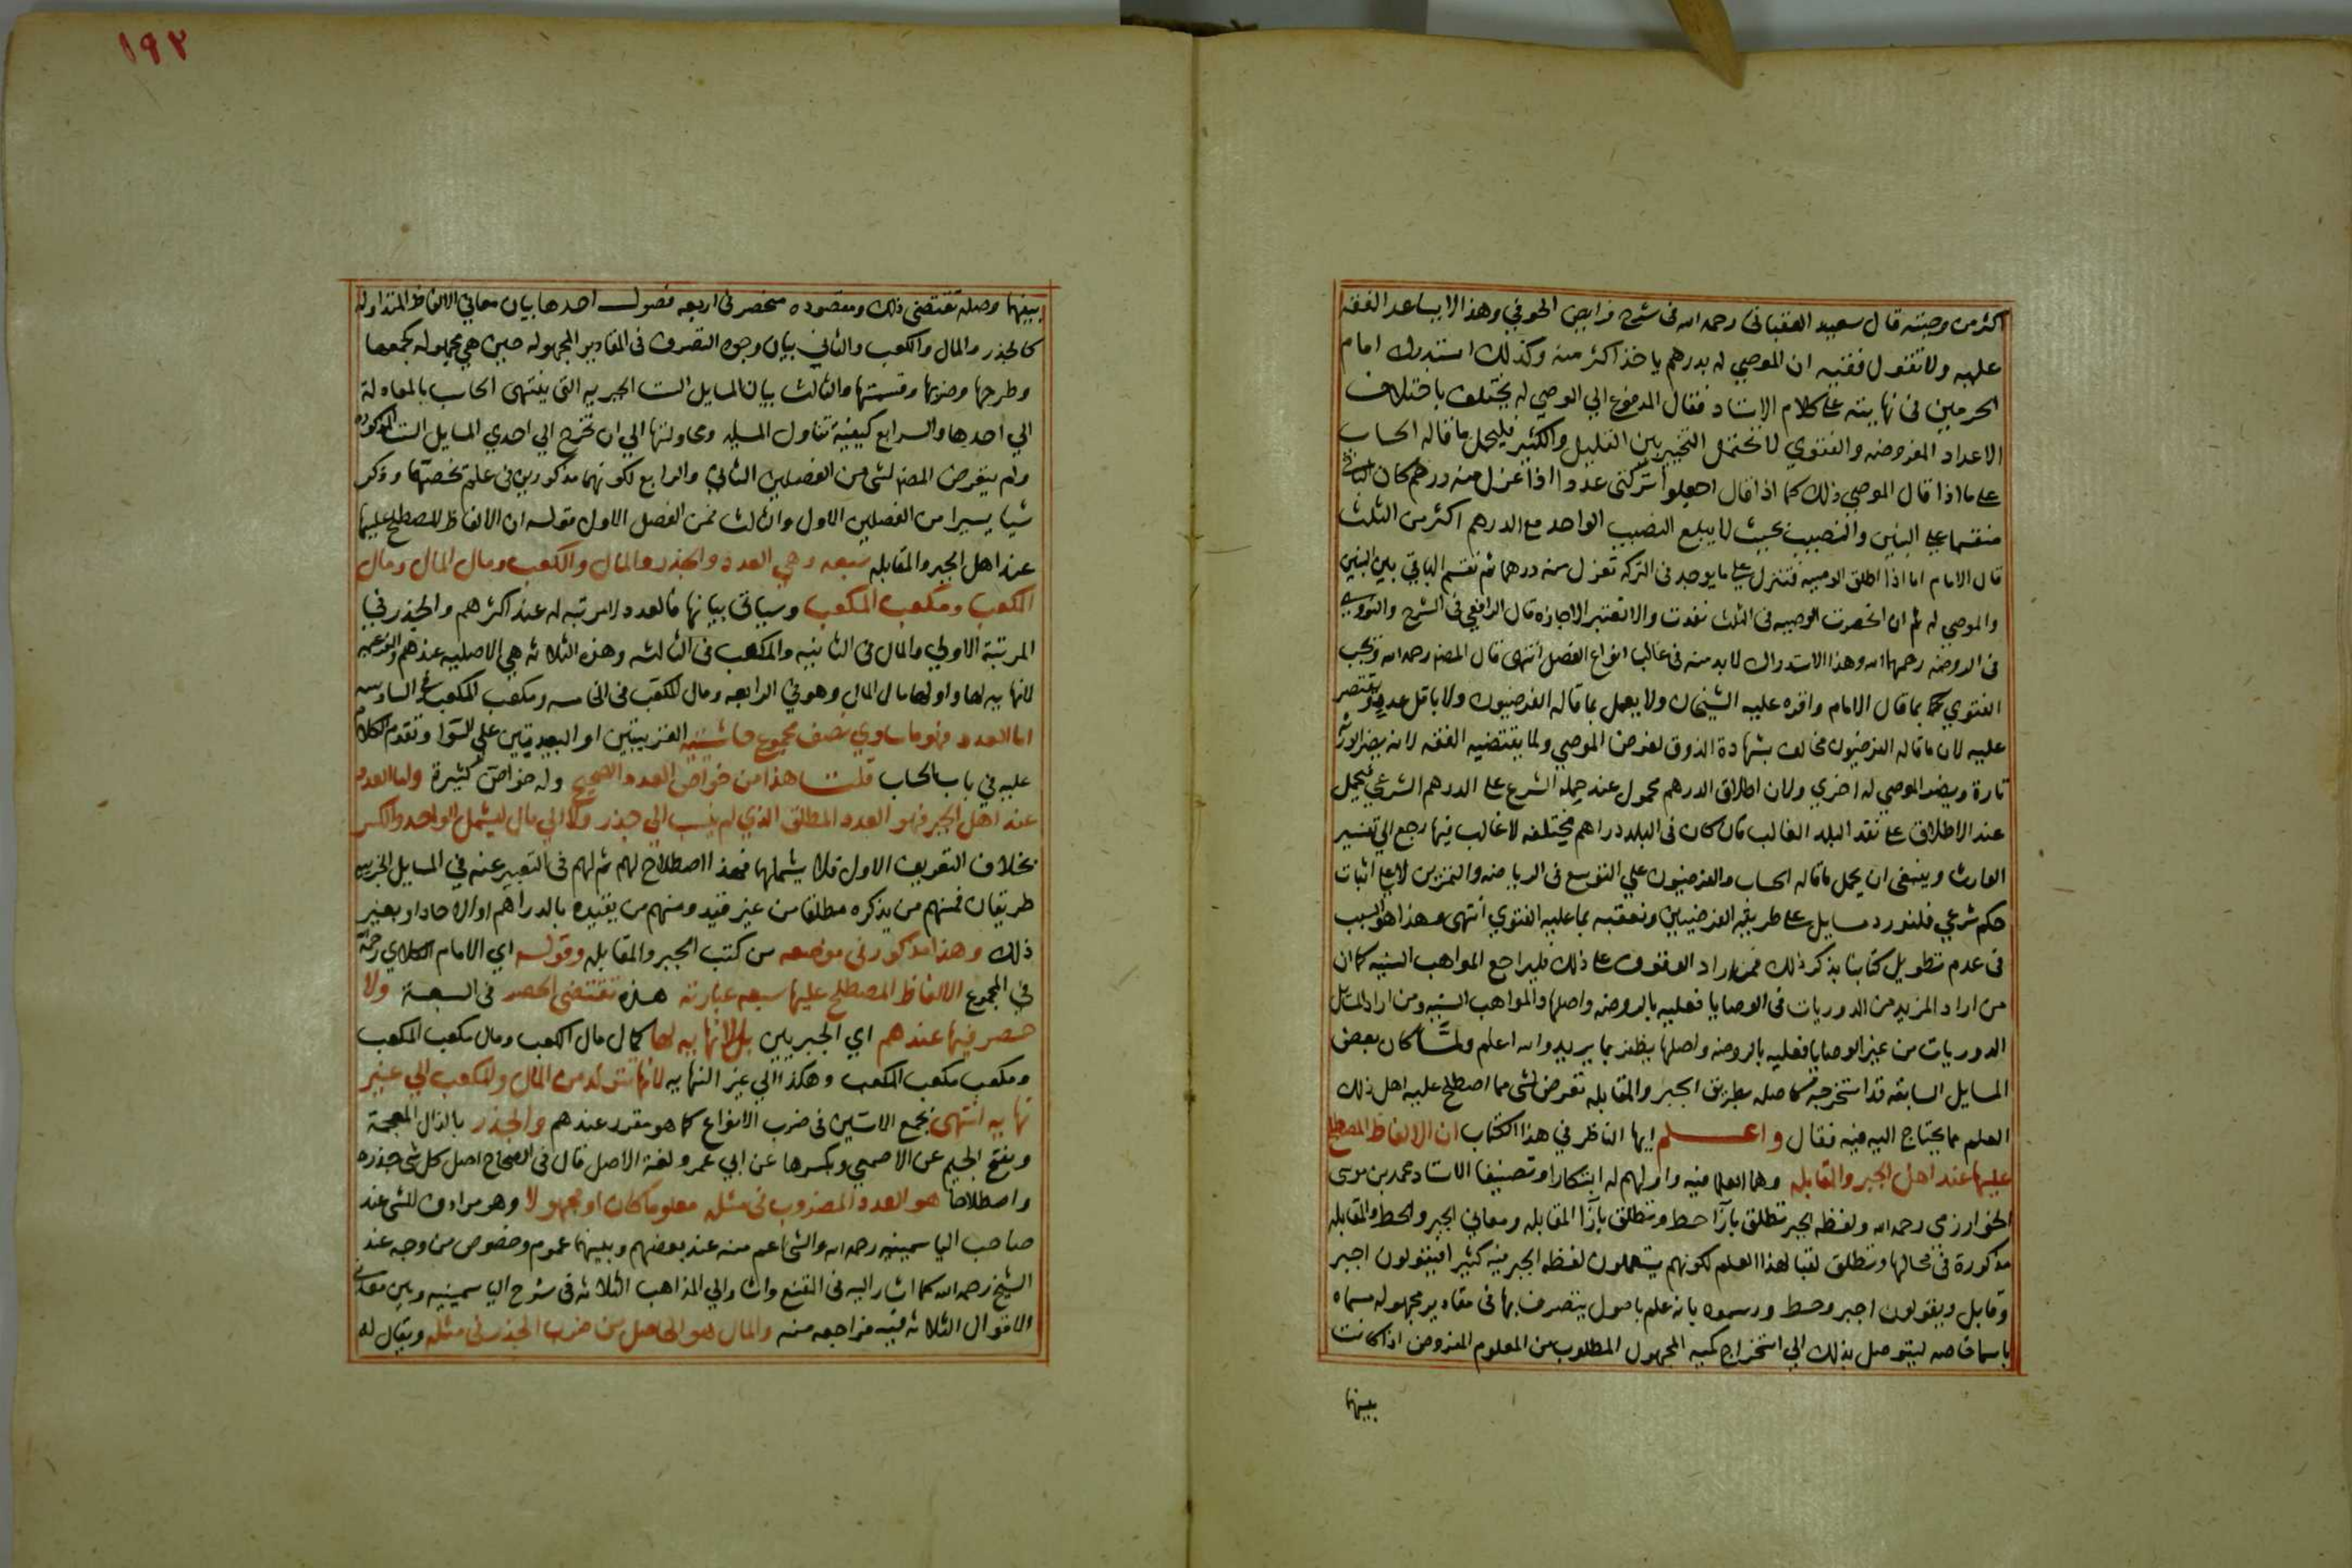 اكثر من وصيته قال سعيد العقباني رحمه الله في شرح فرايض الحوفي وهذا لا يساعد الفقه
عليه ولا تقول فقيه ان الموصي له بدرهم ياخذ اكثر منه وكذلك استدرك امام
الحرمين في نهايته على كلام الاستاد فقال المدفوع الي الوصي له يختلف باختلاف
الاعداد المفروضه والفتوي لا تحتمل التخيير بين القليل والكثير فليحمل ما قاله الحساب
على ما اذا قال الموصي ذلك كما اذا قال اجعلوا تركتي عددا اذا عزل منه درهم كان الباقي
منقسما على البنين والنصيب بحيث لا يبلغ النصيب الواحد مع الدرهم اكثر من الثلث
قال الامام اما اذا اطلق الوصيه فتنزل على ما يوجد في التركه تعزل منه درهما ثم نقسم الباقي بين البنين
والموصي له ثم ان انحصرت الوصيه في الثلث نفدت والا فتعتبر الاجازه قال الرافعي في الشرح والنووي
في الروضه رحمهما الله وهذا الاستدراك لا بد منه في غالب انواع الفصل انتهى قال المصنف رحمه الله وتجب
الفتوي بما قال الامام واقره عليه الشيخان ولا يعمل بما قاله الفرضيون ولا باقل عدد يقتصر
عليه لان ما قاله الفرضيون مخالف بشهادة الذوق لغرض الموصي ولما يقتضيه الفقه لانه يضر الورثة
تارة ويضر الموصي له اخري ولان اطلاق الدرهم محمول عند حملة الشرع على الدرهم الشرعي فيحمل
عند الاطلاق على نقد البلد الغالب فان كان في البلد دراهم مختلفه لا غالب فيها رجع الي تفسير
الوارث وينبغي ان يحمل ما قاله الحساب والفرضيون علي التوسع في الرياضه والتمرين لا على اثبات
حكم شرعي فلنورد مسايل على طريقة الفرضيين ونعقبه بما عليه الفتوي انتهى وهذا هو السبب
في عدم تطويل كتابنا بذكر ذلك فمن اراد الوقوف على ذلك فليراجع المواهب السنيه كما ان
من اراد المزيد من الدوريات في الوصايا فعليه بالروضه واصلها والمواهب السنيه ومن اراد المسايل
الدوريات من غير الوصايا فعليه بالروضه واصلها يظفر بما يريد والله اعلم ولما كان بعض
المسايل السابقه قد استخرجه حاصله بطريق الجبر والمقابله تعرض لشي مما اصطلح عليه اهل ذلك
العلم مما يحتاج اليه فيه فقال واعلم ايها الناظر في هذا الكتاب ان الالفاظ المصطلح
عليها عند اهل الجبر والمقابله وهما العلم فيه واولهم له ابتكارا وتصنيفا الاستاد محمد بن موسى
الخوارزمي رحمه الله ولفظه الجبر تطلق بازا حط وتطلق بازا المقابله ومعاني الجبر والحط والمقابله
مذكورة في محالها وتطلق لقبا لهذا العلم لكونهم يستعملون لفظه الجبر فيه كثيرا فيقولون اجبر
وقابل ويقولون اجبر وحط ورسموه بانه علم باصول يتصرف بها في مقادير مجهوله مسماه
باسما خاصه ليتوصل بذلك الي استخراج كميه المجهول المطلوب من المعلوم المفروض اذا كانت
بينهما
١٩٢
بينهما وصله تقتضي ذلك ومقصوده منحصر في اربعه فصول احدها بيان معاني الالفاظ المتداوله
كالجذر والمال والكعب والثاني بيان وجوه التصرف في المقادير المجهوله حين هي مجهوله بجمعها
وطرحها وضربها وقسمتها والثالث بيان المسايل الست الجبريه التي ينتهي الحساب بالمعادلة
الي احدها والرابع كيفية تناول المسيله ومحاولتها الي ان تخرج الي احدي المسايل الست المذكوره
ولم يتعرض المصنف لشي من الفصلين الثاني والرابع لكونهما مذكورين في علم تخصهما وذكر
شيا يسيرا من الفصلين الاول والثالث فمن الفصل الاول قوله ان الالفاظ المصطلح عليها
عند اهل الجبر والمقابله سبعه وهي العدد والجذر والمال والكعب ومال المال ومال
الكعب ومكعب المكعب وسياتي بيانها فالعدد لا مرتبه له عند اكثرهم والجذر في
المرتبة الاولي والمال في الثانيه والمكعب في الثالثه وهذه الثلاثه هي الاصليه عندهم والفرعيه
لا نهايه لها واولها مال المال وهو في الرابعه ومال المكعب في الخامسه ومكعب المكعب في السادسه
اما العدد فهو ما ساوي نصف مجموع حاشيتيه القريبتين او البعيدتين علي السوا وتقدم الكلام
عليه في باب الحساب قلت هذا من خواص العدد الصحيح وله خواص كثيرة واما العدد
عند اهل الجبر فهو العدد المطلق الذي لم ينسب الي جذر ولا الي مال ليشمل الواحد والكسر
بخلاف التعريف الاول فلا يشملهما فهذا اصطلاح لهم ثم لهم في التعبير عنه في المسايل الجبريه
طريقان فمنهم من يذكره مطلقا من غير قيد ومنهم من يقيده بالدراهم او الاحاد او بغير
ذلك وهذا مذكور في موضعه من كتب الجبر والمقابله وقوله اي الامام الكلاي رحمه
في المجموع الالفاظ المصطلح عليها سبعه عبارته هذه تقتضي الحصر في السبعة ولا
حصر فيها عندهم اي الجبريين بل لا نهايه لها كمال مال الكعب ومال مكعب المكعب
ومكعب مكعب المكعب وهكذا الي غير النهايه لانها تتولد من المال والمكعب الي غير
نهايه انتهى بجمع الاسين في ضرب الانواع كما هو مقرر عندهم والجذر بالذال المعجمة
وبفتح الجيم عن الاصمعي وبكسرها عن ابي عمرو لغة الاصل قال في الصحاح اصل كل شي جذره
واصطلاحا هو العدد المضروب في مثله معلوما كان او مجهولا وهو مرادف للشي عند
صاحب الياسمينيه رحمه الله والشي اعم منه عند بعضهم وبينهما عموم وخصوص من وجه عند
الشيخ رحمه الله كما اشار اليه في المقنع واشار الي المذاهب الثلاثه في شرح الياسمينيه وبين معاني
الاقوال الثلاثه فيه فراجعه منه والمال هو الحاصل من ضرب الجذر في مثله ويقال له